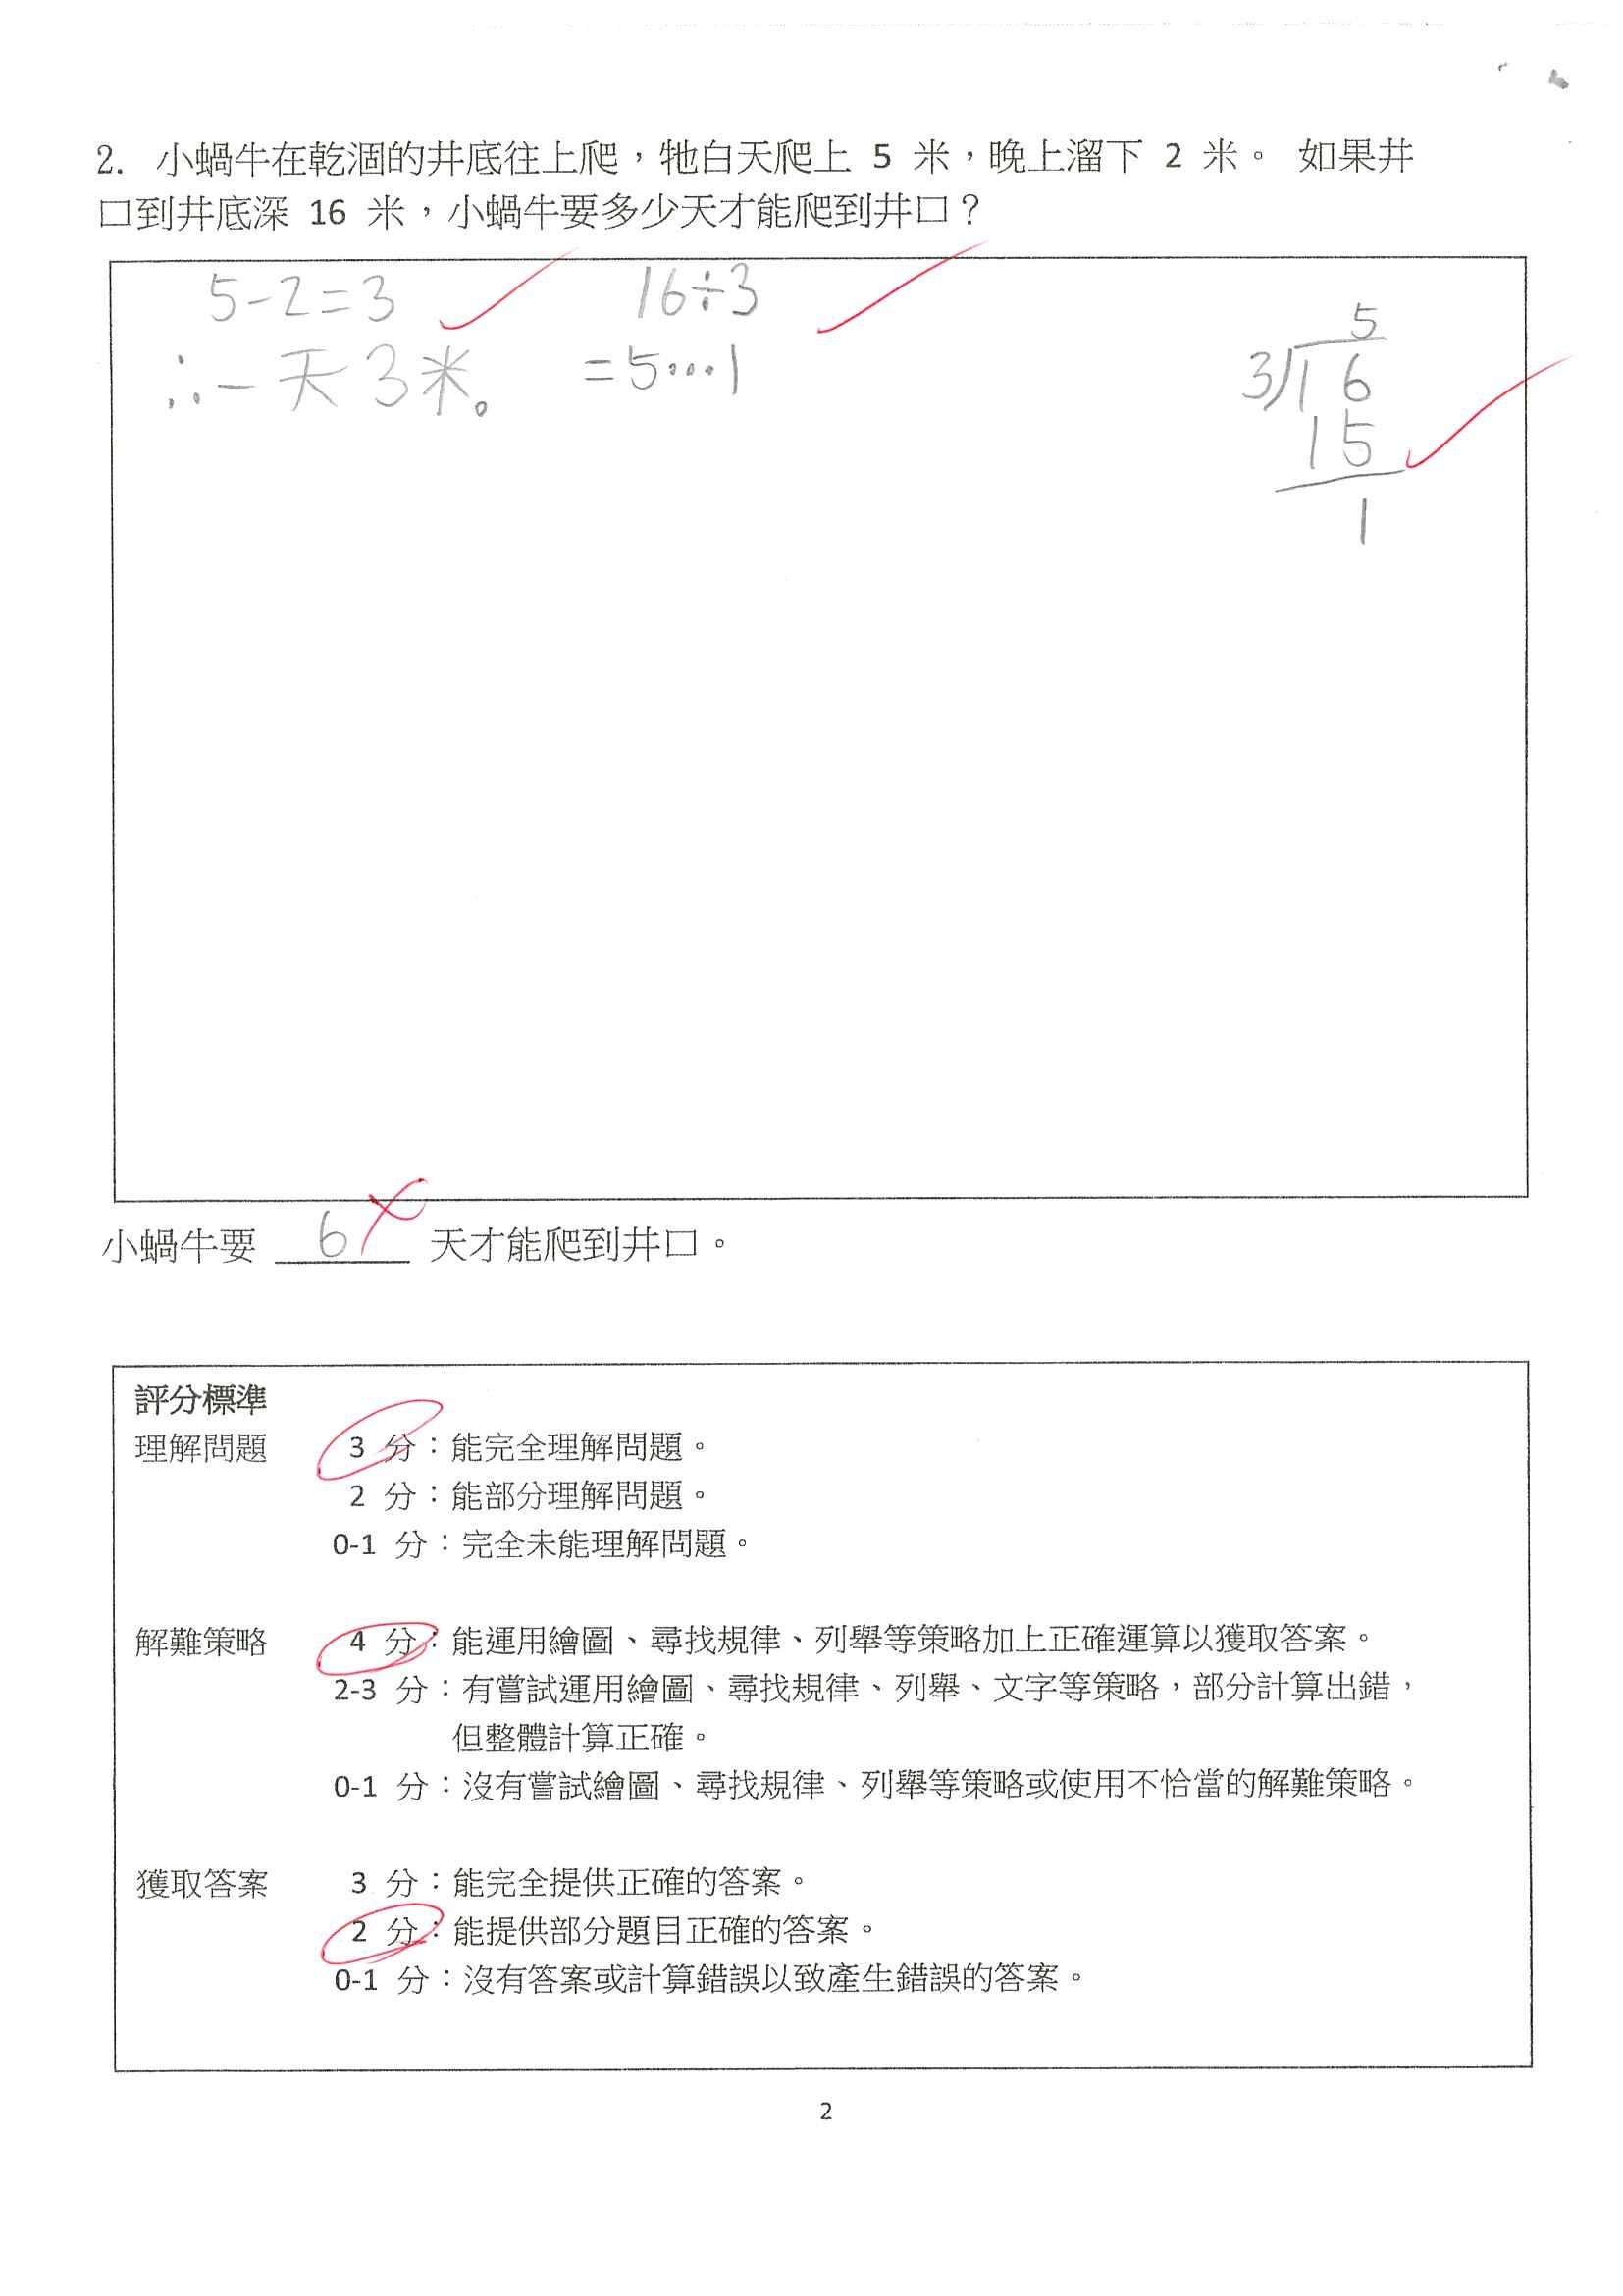 2. 小蝸牛在乾涸的井底往上爬，牠白天爬上 5 米，晚上溜下 2 米。 如果井
口到井底深 16 米，小蝸牛要多少天才能爬到井口？
5-2=3
∴一天3米。
16÷3
=5…1
5
3)16
15
1
小蝸牛要 6 天才能爬到井口。
評分標準
理解問題 3 分：能完全理解問題。
2 分：能部分理解問題。
0-1 分：完全未能理解問題。
解難策略 4 分：能運用繪圖、尋找規律、列舉等策略加上正確運算以獲取答案。
2-3 分：有嘗試運用繪圖、尋找規律、列舉、文字等策略，部分計算出錯，
但整體計算正確。
0-1 分：沒有嘗試繪圖、尋找規律、列舉等策略或使用不恰當的解難策略。
獲取答案 3 分：能完全提供正確的答案。
2 分：能提供部分題目正確的答案。
0-1 分：沒有答案或計算錯誤以致產生錯誤的答案。
2